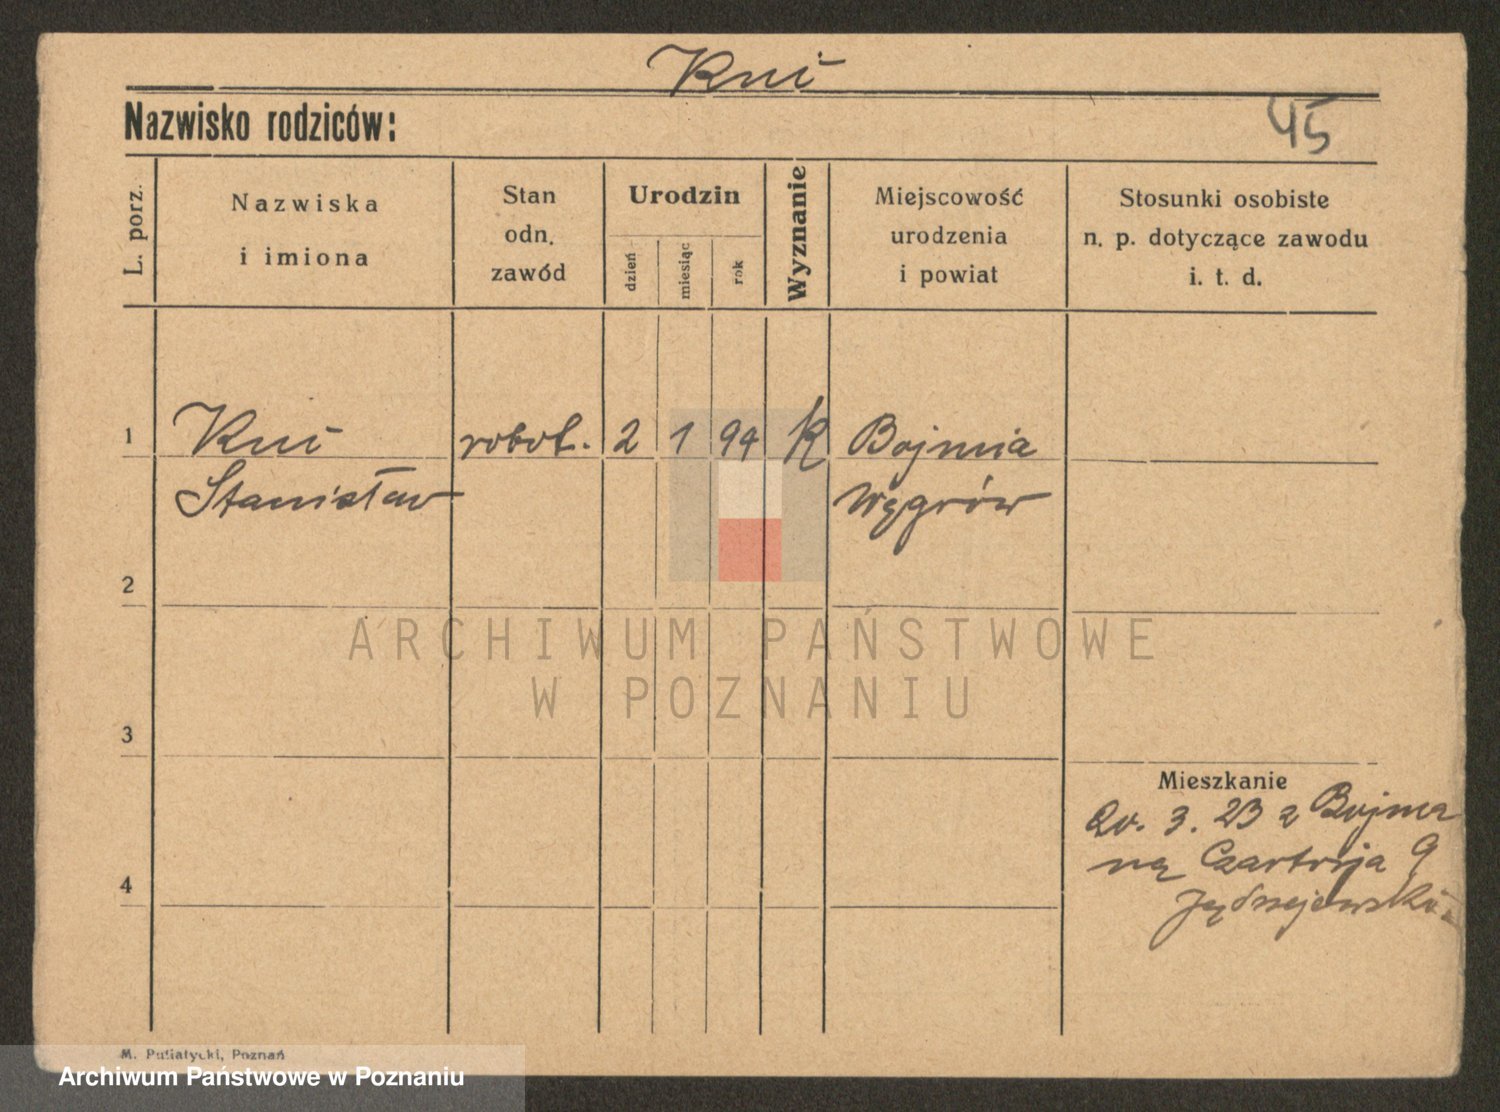 Kuś
45
Nazwisko rodziców:
L. porz.
Nazwiska
i imiona
Stan
odn.
zawód
Urodzin
dzień
miesiąc
rok
Wyznanie
Miejscowość
urodzenia
i powiat
Stosunki osobiste
n. p. dotyczące zawodu
i. t. d.
1
Kuś robot. 2 1 94 K Bojmia
Stanisław Węgrów
2
ARCHIWUM PAŃSTWOWE
W POZNANIU
3
Mieszkanie
3. 23 z Bojma
na Czartorja 9
4
M. Putiatycki, Poznań
Archiwum Państwowe w Poznaniu